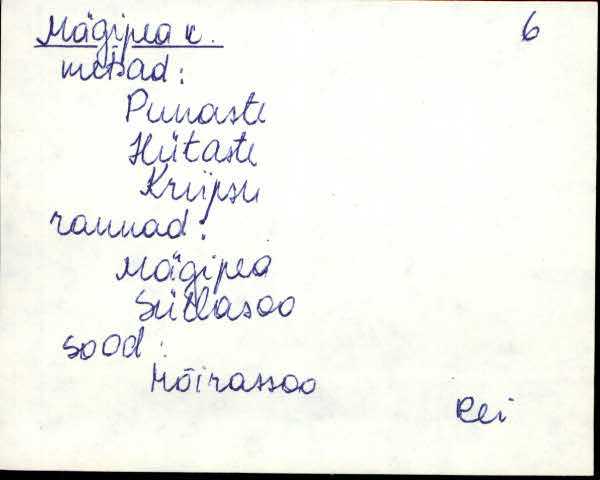 Mägipea k. 6
metsad:
Punaste
Hütaste
Kriipsu
rannad:
Mägipea
Südasoo
sood:
Mõirassoo
Rei